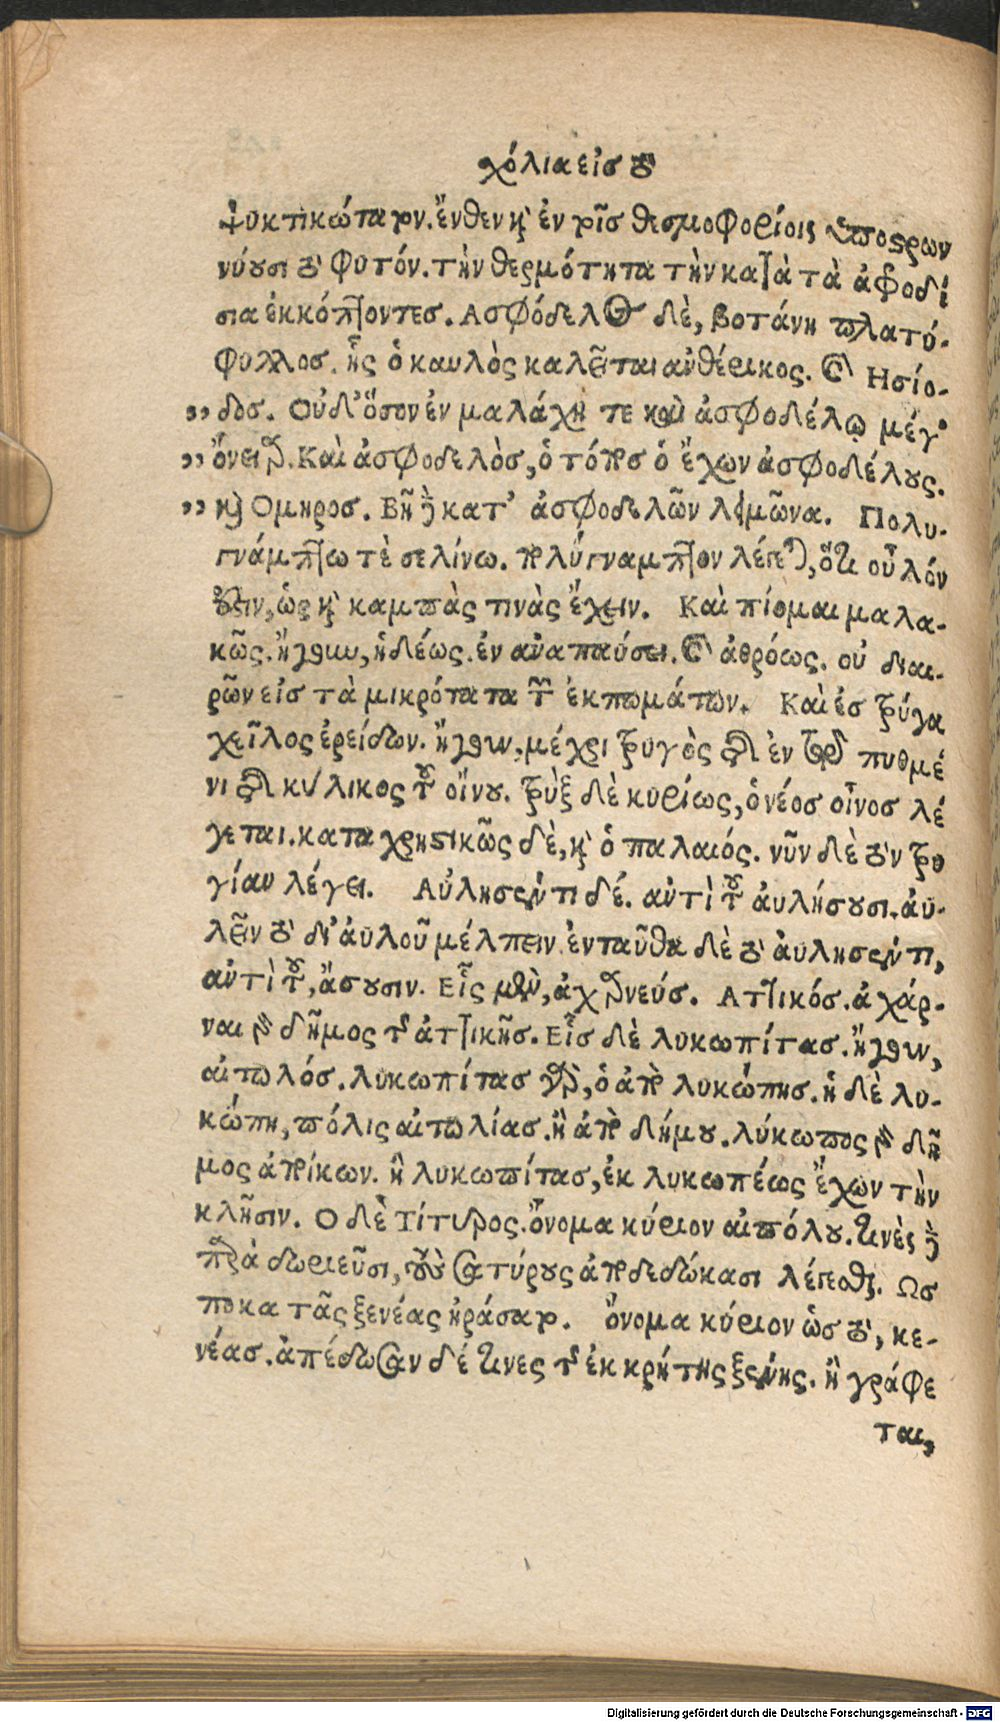 χόλια εἰς τὸ
ψυκτικώτατον. ἔνθεν καὶ ἐν τοῖς θεσμοφορίοις ὑποστρων
νύουσι τὸ φυτόν. τὴν θερμότητα τὴν κατὰ τὰ ἀφροδί
σια ἐκκόπτοντες. Ασφόδελος δὲ, βοτάνη πλατύ-
φυλλος. ἧς ὁ καυλὸς καλεῖται ἀνθέρικος. καὶ Ησίο-
,, δος. Οὐδ' ὅσον ἐν μαλάχῃ τε καὶ ἀσφοδέλῳ μέγ'
,, ὄνειαρ. Καὶ ἀσφοδελὸς, ὁ τόπος ὁ ἔχων ἀσφοδέλους.
,, καὶ Ομηρος. Βῆ δὲ κατ' ἀσφοδελῶν λειμῶνα. Πολυ-
γνάμπτω τὲ σελίνω. πολύγναμπτον λέγεται, ὅτι οὖλόν
ἐστιν, ὡς καὶ καμπὰς τινὰς ἔχειν. Καὶ πίομαι μαλα-
κῶς. ἤγουν, ἡδέως. ἐν ἀναπαύσει. καὶ ἀθρόως. οὐ διαι-
ρῶν εἰς τὰ μικρότατα τῶν ἐκπωμάτων. Καὶ ἐς τρύγα
χεῖλος ἐρείδων. ἤγουν, μέχρι τρυγὸς τῆς ἐν τῷ πυθμέ
νι τῆς κύλικος τοῦ οἴνου. τρὺξ δὲ κυρίως, ὁ νέος οἶνος λέ
γεται. καταχρηστικῶς δὲ, καὶ ὁ παλαιός. νῦν δὲ τὸν τρυ
γίαν λέγει. Αὐλησεῦντι δέ. ἀντὶ τοῦ ἀυλήσουσι. ἀυ-
λεῖν τὸ δι' ἀυλοῦ μέλπειν. ἐνταῦθα δὲ τὸ ἀυλησεῦντι,
ἀντὶ τοῦ, ἄσουσιν. Εἷς μὲν, ἀχαρνεύς. Αττικός. ἀχάρ-
ναι γὰρ δῆμος τῆς ἀττικῆς. Εἷς δὲ λυκωπίτας. ἤγουν,
αἰτωλός. λυκωπίτας γὰρ, ὁ ἀπὸ λυκώπης. ἡ δὲ λυ-
κώπη, πόλις αἰτωλίας. ἢ ἀπὸ δήμου. λύκωπος γὰρ δῆ
μος ἀποίκων. ἢ λυκωπίτας, ἐκ λυκωπέως ἔχων τὴν
κλῆσιν. Ο δὲ Τίτυρος. ὄνομα κύριον αἰπόλου. τινὲς δὲ
παρὰ δωριεῦσι, τοὺς σατύρους ἀποδεδώκασι λέγεσθαι. Ως
ποκα τᾶς ξενέας ἠράσατο. ὄνομα κύριον ὡς τὸ, κε-
νέας. ἀπέδωσαν δέ τινες τῆς ἐκ κρήτης ξένης. ἢ γράφε
ται,
Digitalisierung gefördert durch die Deutsche Forschungsgemeinschaft - DFG